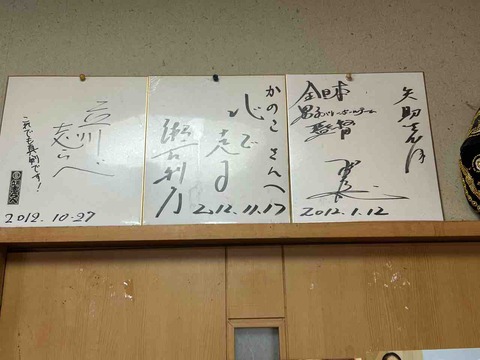 立川志らく
これでも真剣です!
2012.10.27
かのこさんへ
心で走る
瀬古利彦
2012.11.17
矢助さん江
全日本
男子バレーボールチーム
監督
2012.1.12